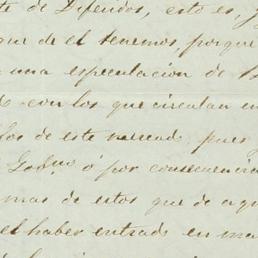 te de Diferidos, esto es, 
que de el tenemos, porque
una especulacion de
con los que circulan en
los de este mercado pues
Gobno. ó por consecuencia
mas de estos que de aqu
el haber entrado en ma